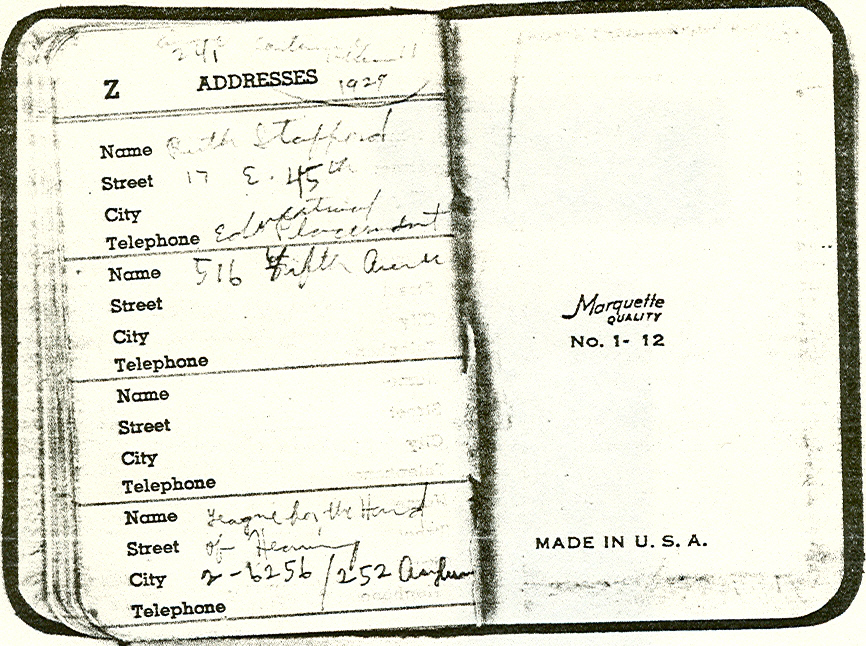 241
Z ADDRESSES 1929
Name Ruth Stafford
Street 17 E. 45th
City
Telephone Educational Placement
Name 516 Fifth Avenue
Street
City
Telephone
Name
Street
City
Telephone
Name League for the Hard
Street of Hearing
City 2-6256/252 Asylum
Telephone
Marquette
QUALITY
No. 1-12
MADE IN U. S. A.